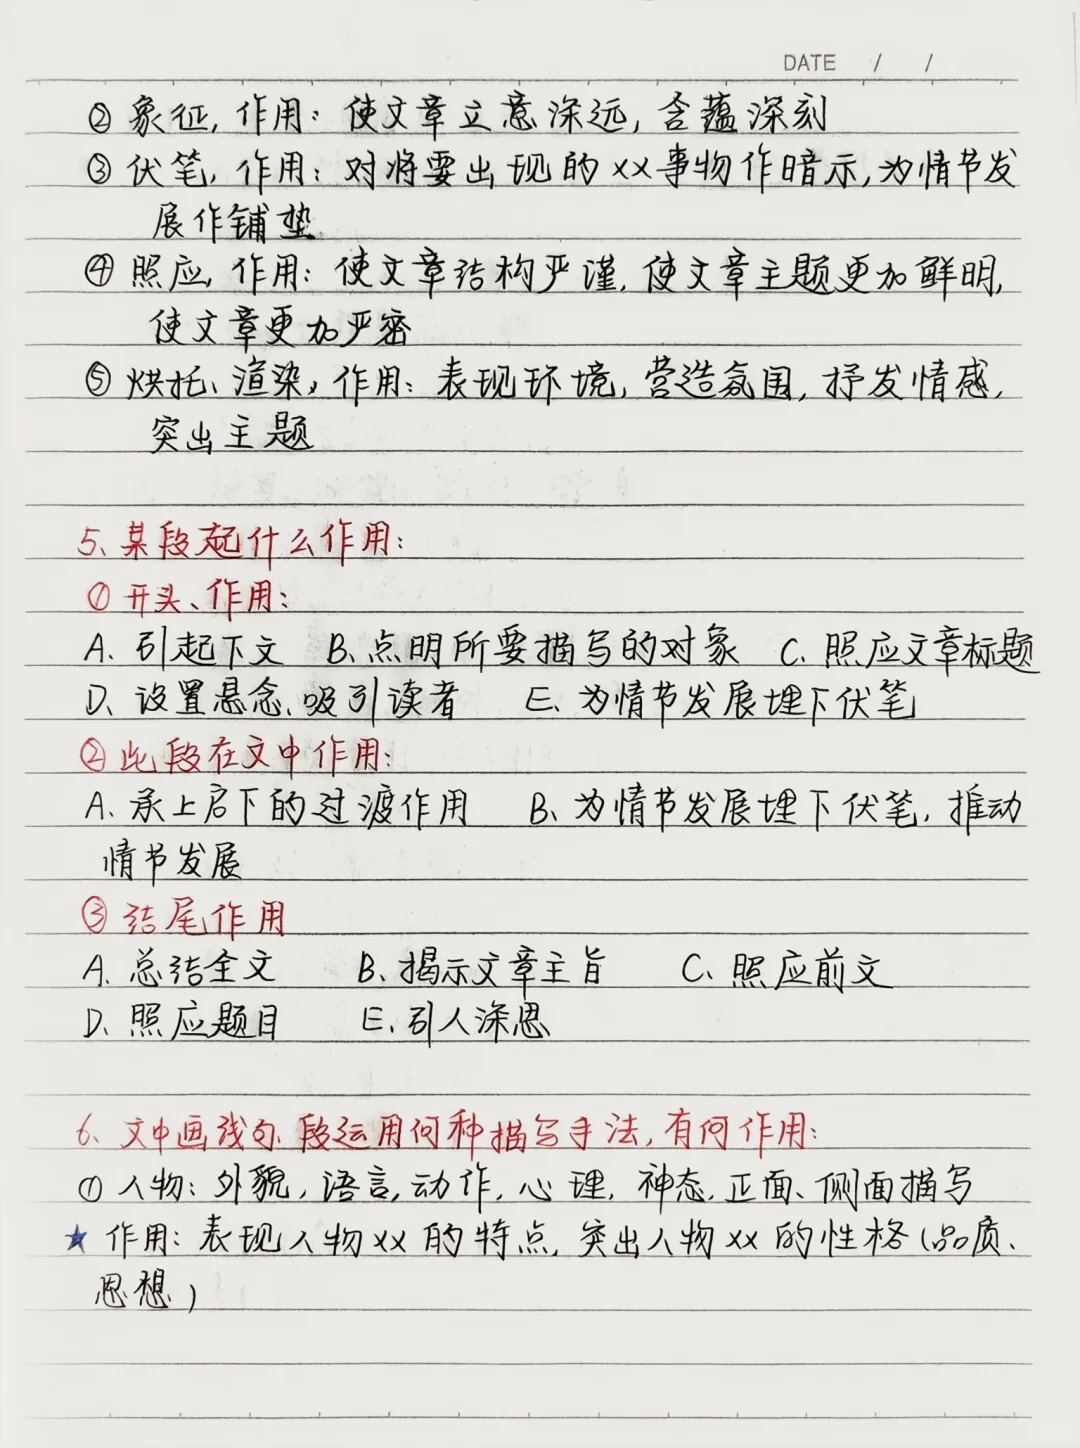 DATE / /
② 象征，作用：使文章立意深远，含蕴深刻
③ 伏笔，作用：对将要出现的××事物作暗示，为情节发
展作铺垫
④ 照应，作用：使文章结构严谨，使文章主题更加鲜明，
使文章更加严密
⑤ 烘托、渲染，作用：表现环境，营造氛围，抒发情感，
突出主题
5、某段起什么作用：
① 开头、作用：
A. 引起下文 B、点明所要描写的对象 C. 照应文章标题
D、设置悬念、吸引读者 E、为情节发展埋下伏笔
② 此段在文中作用：
A、承上启下的过渡作用 B、为情节发展埋下伏笔，推动
情节发展
③ 结尾作用
A. 总结全文 B、揭示文章主旨 C、照应前文
D、照应题目 E、引人深思
6、文中画线句、段运用何种描写手法，有何作用：
① 人物：外貌，语言，动作，心理，神态，正面、侧面描写
★ 作用：表现人物××的特点，突出人物××的性格（品质、
思想）